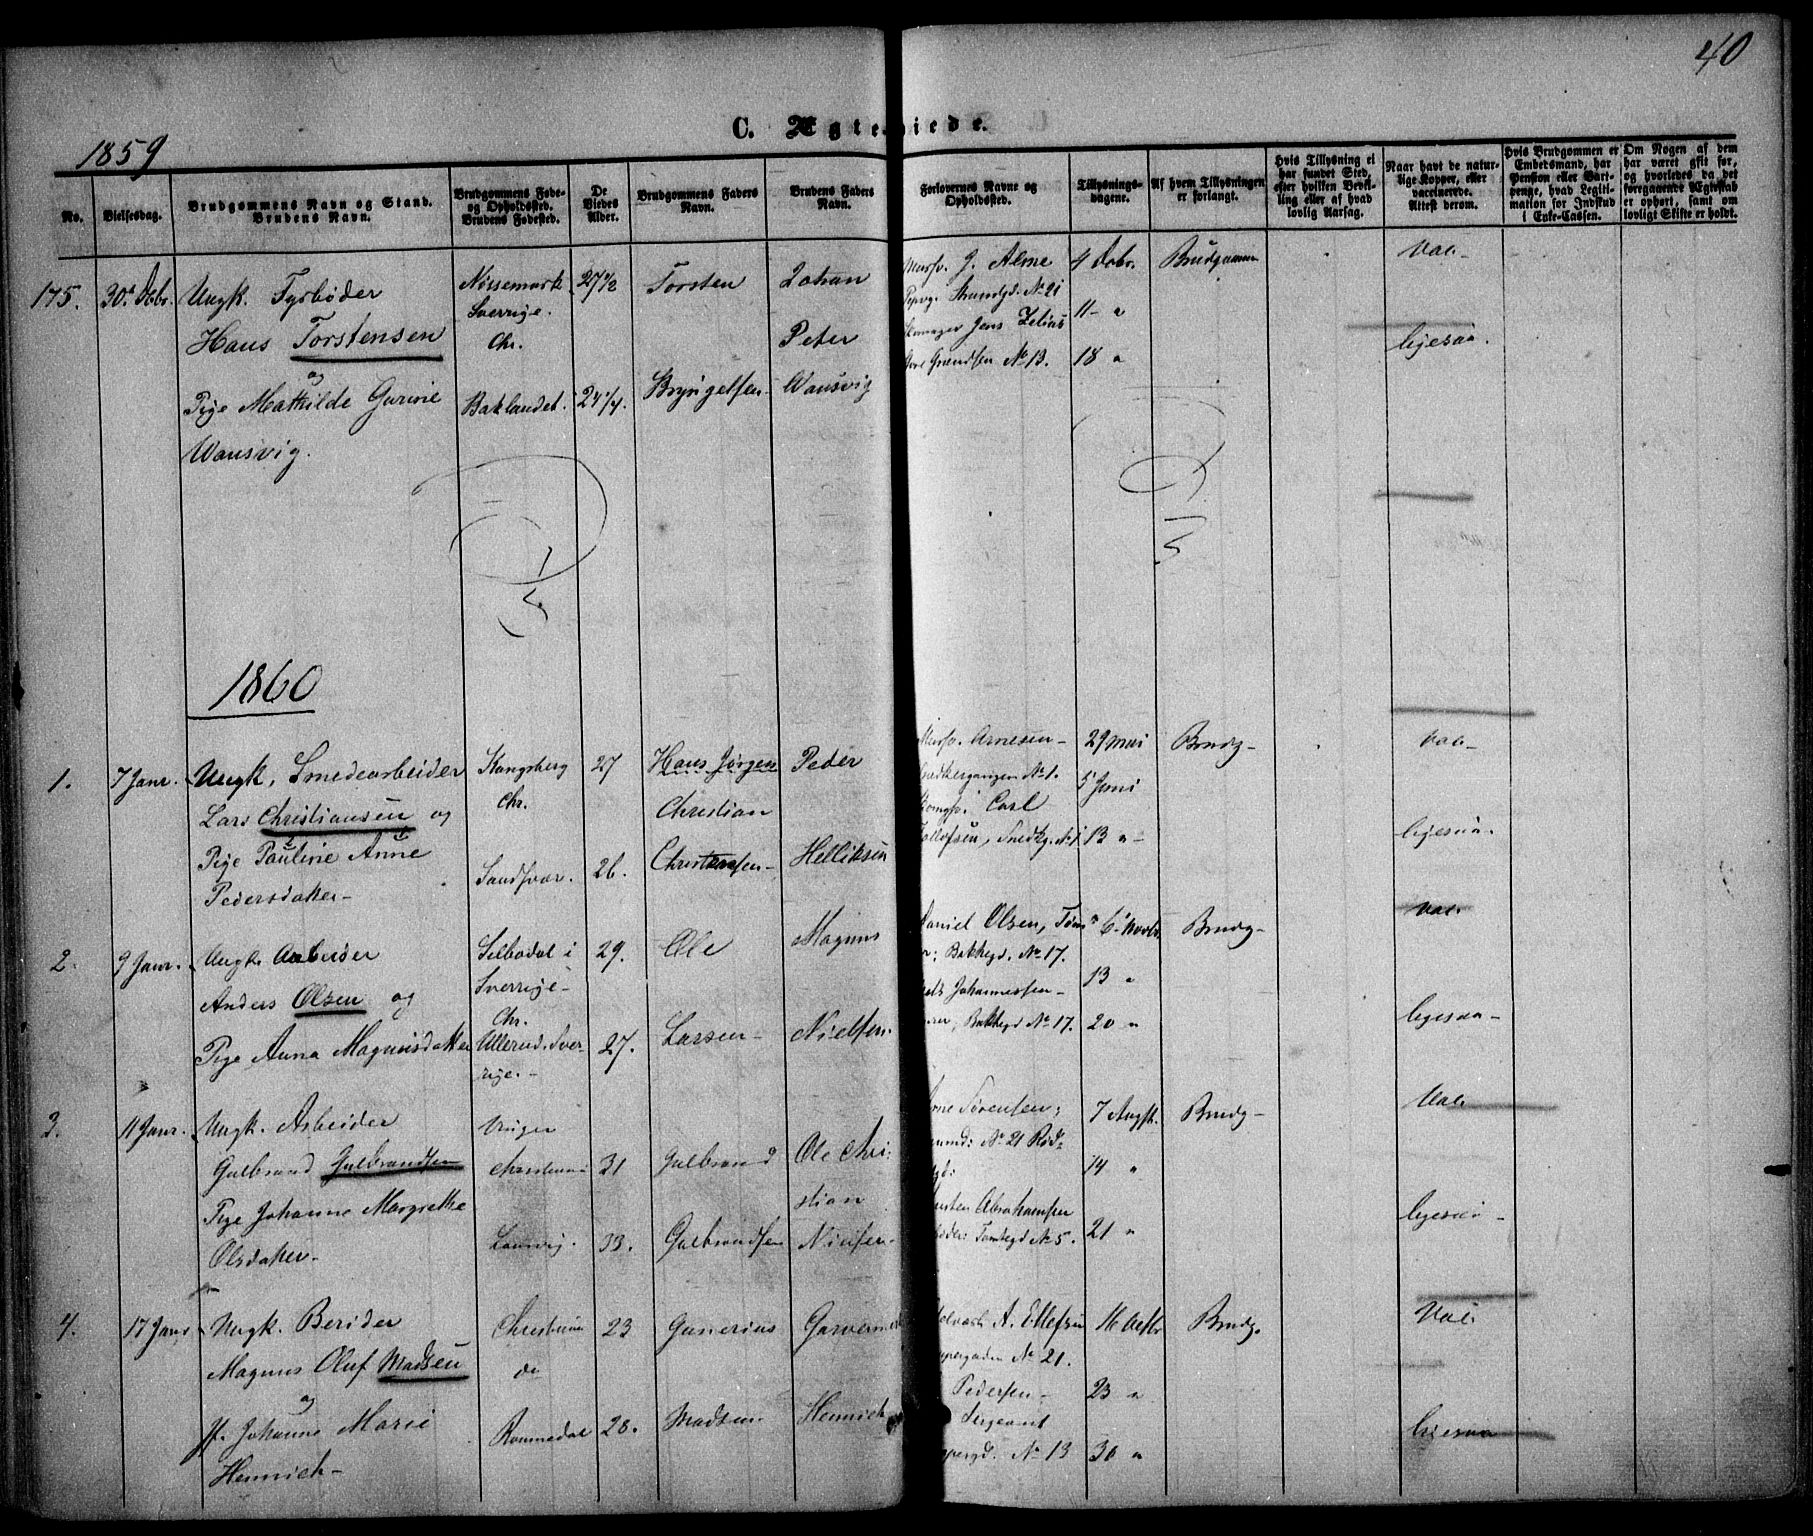 40
C. Ægteviede.
1859
No.
Vielsesdag.
Brudgommens Navn og Stand.
Brudens Navn.
Brudgommens Føde-
og Opholdssted.
Brudens Fødested.
De
Viedes
Alder.
Brudgommens Faders
Navn.
Brudens Faders
Navn.
Forlovernes Navne og
Opholdssted.
Tillysnings-
dagene.
Af hvem Tillysningen
er forlangt.
Hvis Tillysning ei
har fundet Sted,
efter hvilken Bevil-
ling eller af hvad
lovlig Aarsag.
Naar havt de natur-
lige Kopper, eller
vaccinerede.
Attest derom.
Hvis Brudgommen er
Embedsmand, har
Pension eller Vart-
penge, hvad Legiti-
mation for Indskud
i Enke-Cassen.
Om Nogen af dem
har været gift før,
og hvorledes da det
foregaaende Ægteskab
er ophørt, samt om
lovligt Skifte er holdt.
175. 30te Dbr. Ungk. Fyrbøder
Hans Torstensen
og
Pige Mathilde Gurine
Wansvig.
Nössemark
Sverrige.
Chr.
Baklandet.
27 1/2
24 1/4.
Torsten
Bryngelsen
Johan
Peter
Wansvig
J. Alme
Strandgd. No 21
Jens
No 13.
4 Dbr.
11 - "
18 "
Brudgommen
Vac.
ligesaa.
1860
1. 7 Janr. Ungk, Smedearbeider
Lars Christiansen og
Pige Pauline Anne
Pedersdatter -
Kongsberg
Chr.
Sandsvær.
27
26.
Hans Jørgen
Christian
Christensen -
Peder
Helliksen
Arnesen -
No 1.
Carl
No 1
29 mai
5 Juni
13 " -
Brudg -
Vac -
ligesaa -
2. 9 Janr. Ungk. Arbeider
Anders Olsen og
Pige Anna Magnusdatter
Silbodal i
Sverrige -
Chr.
Ullerud. Sver-
rige. -
29.
27.
Ole
Larsen -
Magnus
Nielsen.
Daniel Olsen,
Bakkegd. No 17.
Johannessen -
Bakkegd No 17.
6 Novbr.
13 "
20 "
Brudg -
Vac.
ligesaa -
3. 11 Janr. Ungk. Arbeider
Gulbrand Gulbrandsen
Pige Johanne Margrethe
Olsdatter -
Vinger
Christiania
Laurvig.
31
33.
Gulbrand
Gulbrandsen
Ole Chri-
stian
Nielsen -
Sørensen;
No 21
Abrahamsen
Tomtegd No 5.
7 Augst.
14 "
21 "
Brudg -
Vac.
ligesaa -
4. 17 Janr Ungk. Berider
Magnus Oluf Madsen
og
Jf. Johanne Marie
Heinrich -
Christiania
do
Romedal
23
28.
Gunerius
Madsen
Heinrich
A. Ellefsen
No 21.
Pedersen -
Sergeant
No 13
16 Octbr
23 "
30 "
Brudg.
Vac.
ligesaa